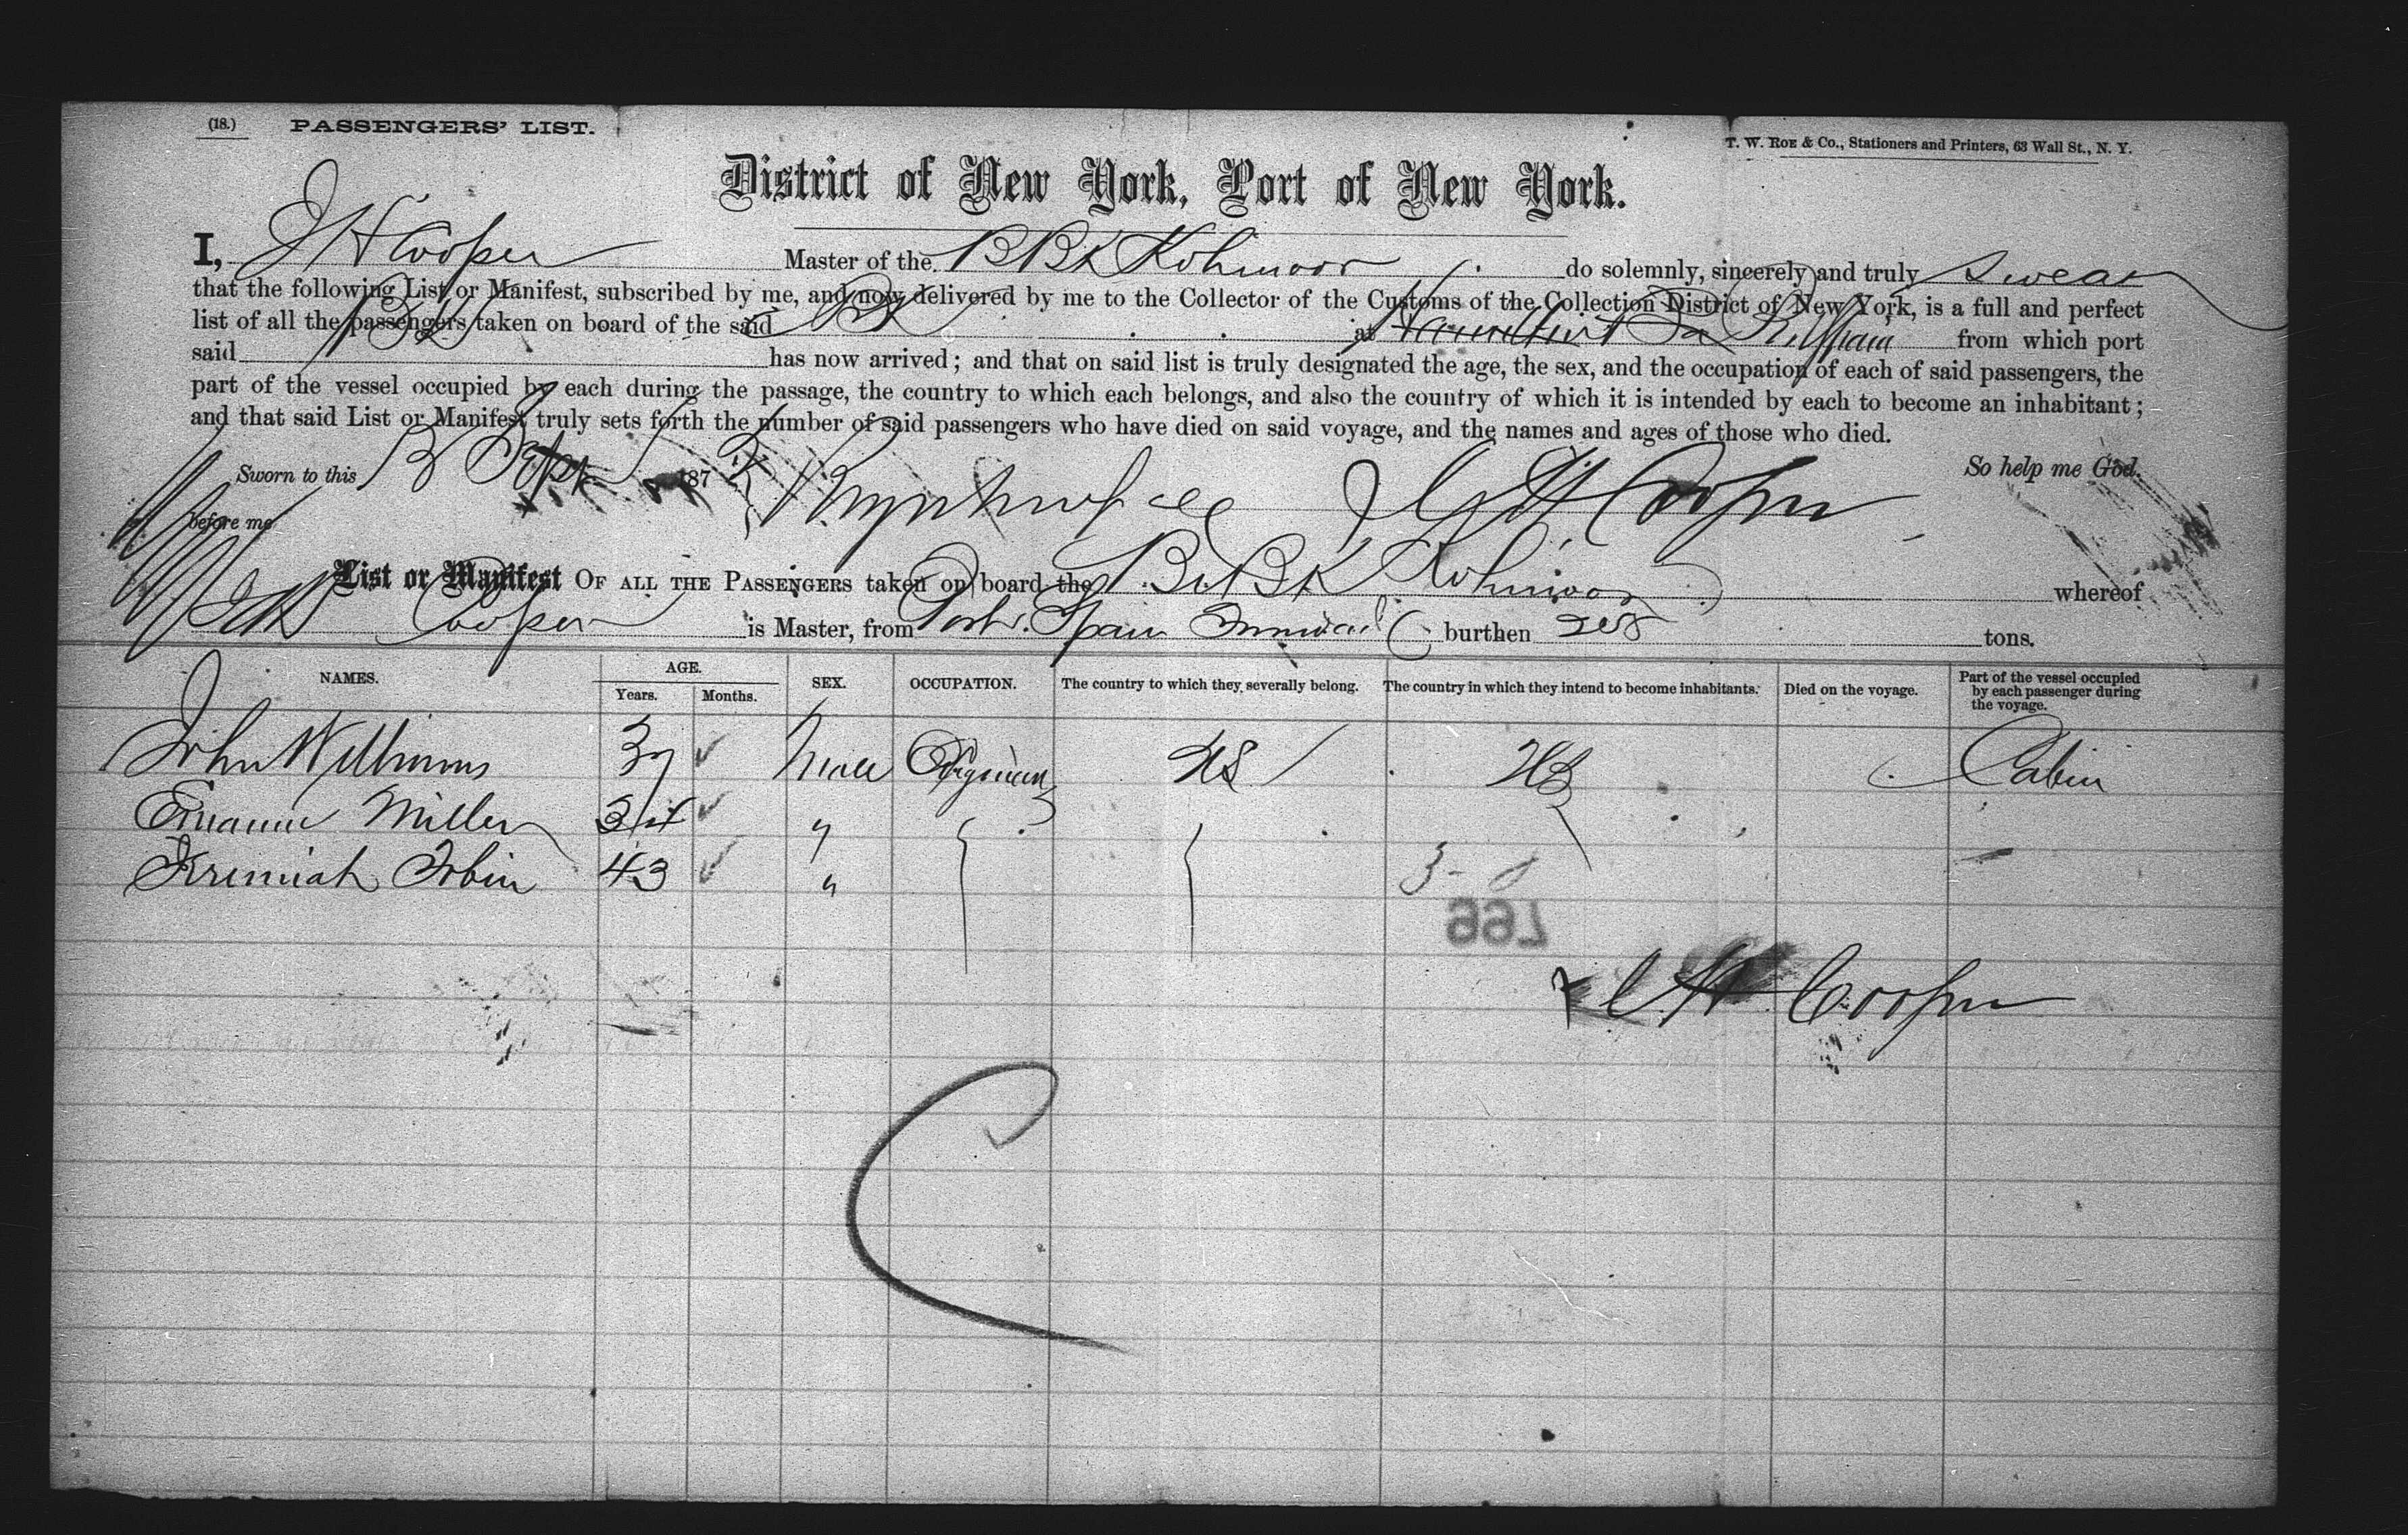 (18.) PASSENGERS' LIST.
T. W. ROE & Co., Stationers and Printers, 63 Wall St., N. Y.
District of New York, Port of New York.
I, J H Cooper Master of the B Bk Kohinoor do solemnly, sincerely and truly swear
that the following List or Manifest, subscribed by me, and now delivered by me to the Collector of the Customs of the Collection District of New York, is a full and perfect
list of all the passengers taken on board of the said Bk at Spain from which port
said Bk has now arrived; and that on said list is truly designated the age, the sex, and the occupation of each of said passengers, the
part of the vessel occupied by each during the passage, the country to which each belongs, and also the country of which it is intended by each to become an inhabitant;
and that said List or Manifest truly sets forth the number of said passengers who have died on said voyage, and the names and ages of those who died.
Sworn to this 13 Sept 187 So help me God.
before me Cooper
List or Manifest OF ALL THE PASSENGERS taken on board the Br Bk Kohinoor whereof
J H Cooper is Master, from Port Spain Trinidad burthen tons.
NAMES. AGE. SEX. OCCUPATION. The country to which they severally belong. The country in which they intend to become inhabitants. Died on the voyage. Part of the vessel occupied by each passenger during the voyage.
Years. Months.
John Williams 37 Male US US Cabin
Miller 34 "
Jeremiah Tobin 43 "
3
997
Cooper
C